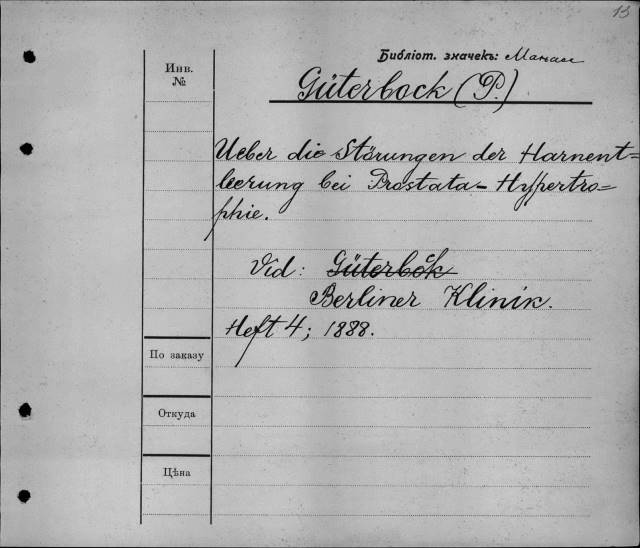 13
Библіот. значекъ: Манас
Инв.
№
Güterbock (P.)
Ueber die Störungen der Harnent=
leerung bei Prostata- Hypertro=
phie.
Vid: Güterbock
Berliner Klinik.
Heft 4; 1888.
По заказу
Откуда
Цѣна